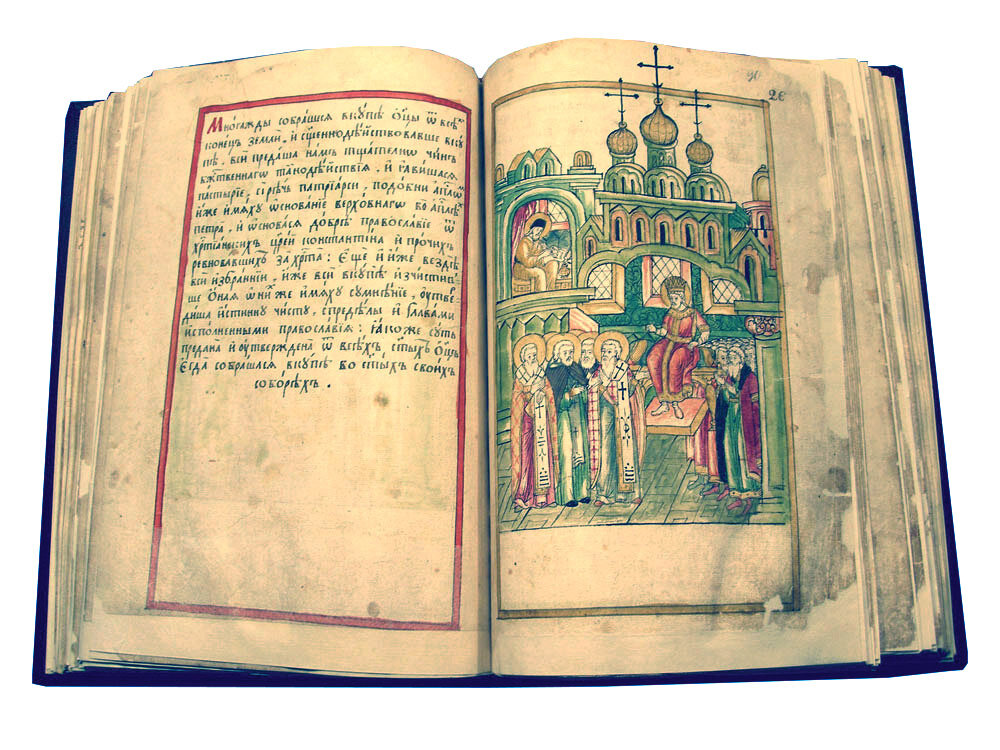 Многажды собравшеся вкупѣ ѻц҃ы ѿ всѣхъ
конецъ земли, и҆ сщ҃еннодѣйствовавше вку
пѣ, всѝ предаша намъ тщателиѡ чинъ
бж҃ественнагѡ таинодѣйствїѧ, и҆ ꙗ҆вишасѧ
пастырїе, сирѣчь патрїарси, подобни а҆пⷭ҇лѡмъ
и҆же и҆мѧхꙋ ѡ҆снованїе верховнагѡ во а҆пⷭ҇лѣхъ
петра, и҆ ѡ҆сновасѧ добрѣ православїе ѿ
хрⷭ҇тїанскихъ цр҃ей константїна и҆ прочихъ
ревновавшихъ за хрⷭ҇та: є҆ще и҆ и҆же вездѣ
всѝ и҆збраннїи, и҆же всѝ вкꙋпѣ и҆зчистив
ше ѻ҆наѧ ѡ҆ ни́хже и҆мѧхꙋ сꙋмнѣнїе, ᲂу҆тве
диша и҆стиннꙋ чистꙋ, с предѣлы и҆ главами
и҆сполненными православїѧ: ꙗ҆коже сꙋть
преданѧ и҆ ᲂу҆тверждена ѿ всѣхъ ст҃ыхъ ѻ҆ц҃ъ
Є҆гда собрашасѧ вкупѣ во ст҃ыхъ своихъ
соборѣхъ.
90
2є